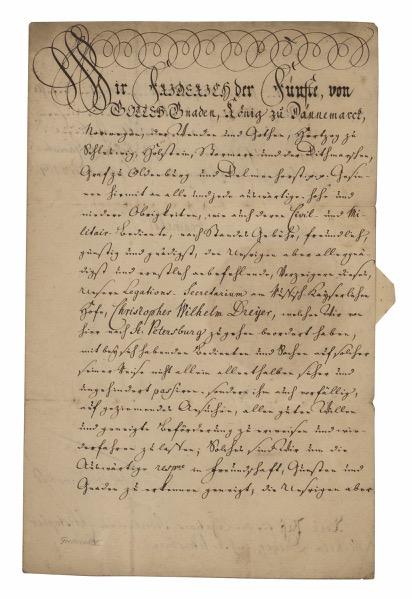 Wir FRIDERICH der Fünfte, von
GOTTES Gnaden, König zu Dännemarck,
Norwegen, der Wenden und Gothen, Hertzog zu
Schleswig, Holstein, Stormarn und der Dithmarschen,
Graf zu Oldenburg und Delmenhorst
hiermit an alle und jede auswärtige hohe und
niedere Obrigkeiten, wie auch deren Civil- und Mi-
litair-Bediente, nach Standes Gebühr, freundlich,
günstig und gnädigst, den Unsrigen aber allergnä-
digst und ernstlich anbefehlende, Vorzeigern dieses,
Unsern Legations-Secretarium am Kayserlichen
Hofe, Christopher Wilhelm Dreyer, welchen Wir von
hier nach St. Petersburg zu gehen beordert haben,
mit bey sich habenden Bedienten und Sachen auf solcher
seiner Reise nicht allein allenthalben sicher und
ungehindert passiren, sondern ihm auch
auf geziemendes Ansuchen, allen guten Willen
und geneigte Beförderung zu erweisen und wie-
derfahren zu lassen; Solches sind Wir um die
Auswärtige respve in Freundschaft, Gunsten und
Gnaden zu erkennen geneigt, die Unsrigen aber